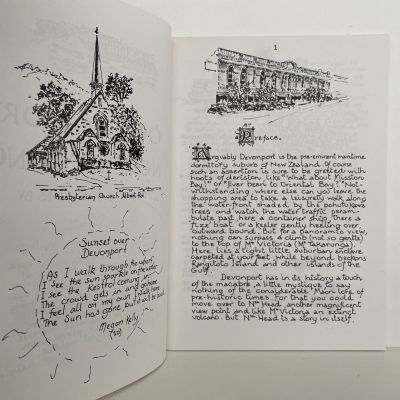 Presbyterian Church Albert Rd.
Sunset over
Devonport
As I walk through the wharf
I see the sun sparkle on the water
I see the Kestrel coming in
The crowd gets in and gone
I feel all on my own I walk home
The sun has gone, but it will be back
Megan Kelly
1
Preface.
Arguably Devonport is the pre-eminent maritime
dormitory suburb of New Zealand. Of course
such an assertion is sure to be greeted with
hoots of derision, like "What about Mission
Bay!" or "Ever been to Oriental Bay!" Not-
withstanding where else can you leave the
shopping area to take a leisurely walk along
the water-front shaded by the pohutukawa
trees and watch the water traffic peram-
bulate past, here a container ship, there a
fizz boat or a keeler gently heeling over,
outward bound. But for a panoramic view,
nothing can surpass a climb (not so gentle)
to the top of Mt Victoria (Mt Takarunga).
Here lies a tight little, suburban enclave
carpeted at your feet while beyond beckons
Rangitoto Island and other islands of the
Gulf.
Devonport has in its history a touch of
the macabre, a little mystique to say
nothing of the considerable Maori lore of
pre-historic times. For that you could
move over to Nth Head another magnificent
view point and like Mt Victoria an extinct
volcano. But Nth Head is a story in itself.